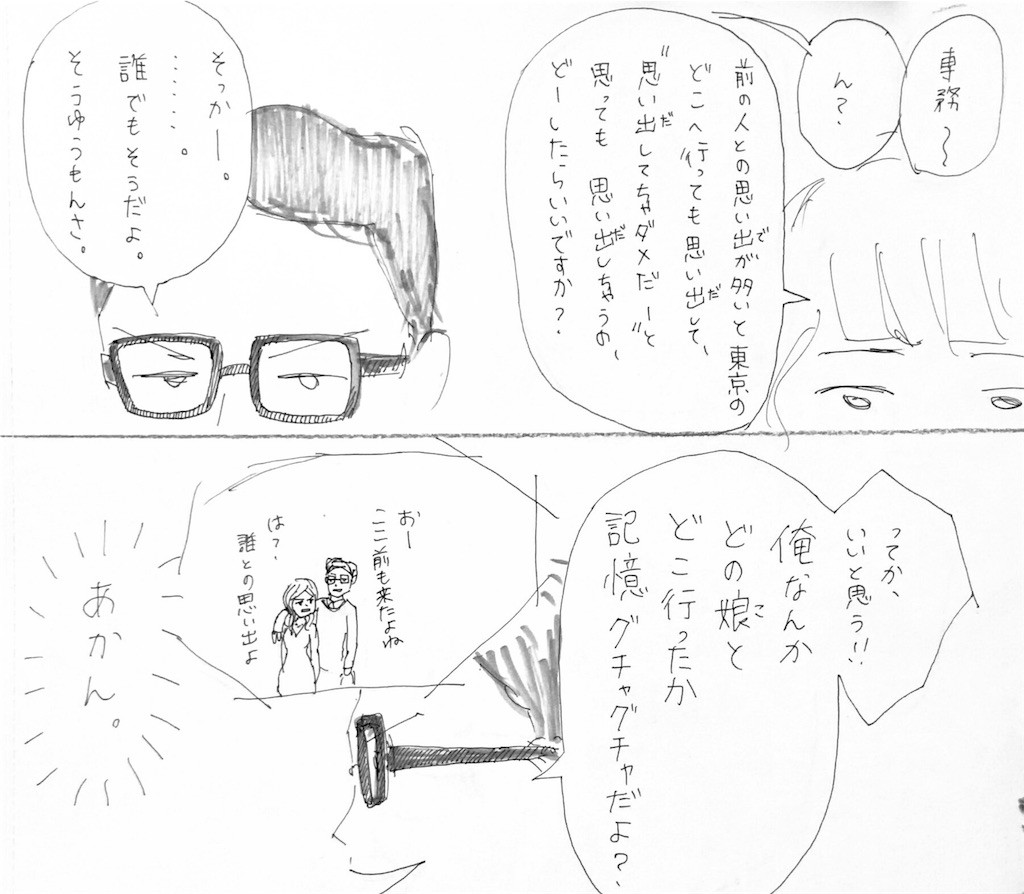 専務〜
ん？
前の人との思い出が多いと東京の
で
どこへ行っても思い出して、
だ
”思い出してちゃダメだー”と
だ
思っても 思い出しちゃうの、
だ
どーしたらいいですか？
そっかー。
・・・・・。
誰でもそうだよ。
そうゆうもんさ。
ってか、
いいと思う!!
俺なんか
どの娘と
こ
どこ行ったか
記憶グチャグチャだよ？
おー
ここ前も来たよね
は？、
誰との思い出よ
あかん。